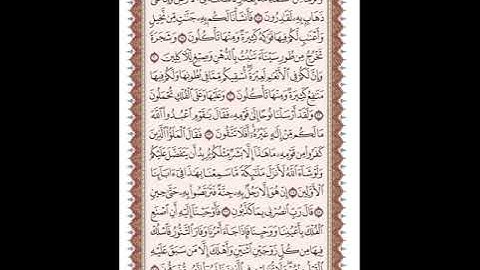 ذَهَابٍ بِهِۦ لَقَٰدِرُونَ ۝١٨ فَأَنشَأْنَا لَكُم بِهِۦ جَنَّٰتٍ مِّن نَّخِيلٍ
وَأَعْنَٰبٍ لَّكُمْ فِيهَا فَوَٰكِهُ كَثِيرَةٌ وَمِنْهَا تَأْكُلُونَ ۝١٩ وَشَجَرَةً
تَخْرُجُ مِن طُورِ سَيْنَآءَ تَنۢبُتُ بِٱلدُّهْنِ وَصِبْغٍ لِّلْءَاكِلِينَ ۝٢٠
وَإِنَّ لَكُمْ فِى ٱلْأَنْعَٰمِ لَعِبْرَةً نُّسْقِيكُم مِّمَّا فِى بُطُونِهَا وَلَكُمْ فِيهَا
مَنَٰفِعُ كَثِيرَةٌ وَمِنْهَا تَأْكُلُونَ ۝٢١ وَعَلَيْهَا وَعَلَى ٱلْفُلْكِ تُحْمَلُونَ
۝٢٢ وَلَقَدْ أَرْسَلْنَا نُوحًا إِلَىٰ قَوْمِهِۦ فَقَالَ يَٰقَوْمِ ٱعْبُدُوا۟ ٱللَّهَ
مَا لَكُم مِّنْ إِلَٰهٍ غَيْرُهُۥٓ أَفَلَا تَتَّقُونَ ۝٢٣ فَقَالَ ٱلْمَلَؤُا۟ ٱلَّذِينَ
كَفَرُوا۟ مِن قَوْمِهِۦ مَا هَٰذَآ إِلَّا بَشَرٌ مِّثْلُكُمْ يُرِيدُ أَن يَتَفَضَّلَ عَلَيْكُمْ
وَلَوْ شَآءَ ٱللَّهُ لَأَنزَلَ مَلَٰٓئِكَةً مَّا سَمِعْنَا بِهَٰذَا فِىٓ ءَابَآئِنَا
ٱلْأَوَّلِينَ ۝٢٤ إِنْ هُوَ إِلَّا رَجُلٌۢ بِهِۦ جِنَّةٌ فَتَرَبَّصُوا۟ بِهِۦ حَتَّىٰ حِينٍ
۝٢٥ قَالَ رَبِّ ٱنصُرْنِى بِمَا كَذَّبُونِ ۝٢٦ فَأَوْحَيْنَآ إِلَيْهِ أَنِ ٱصْنَعِ
ٱلْفُلْكَ بِأَعْيُنِنَا وَوَحْيِنَا فَإِذَا جَآءَ أَمْرُنَا وَفَارَ ٱلتَّنُّورُ فَٱسْلُكْ
فِيهَا مِن كُلٍّ زَوْجَيْنِ ٱثْنَيْنِ وَأَهْلَكَ إِلَّا مَن سَبَقَ عَلَيْهِ